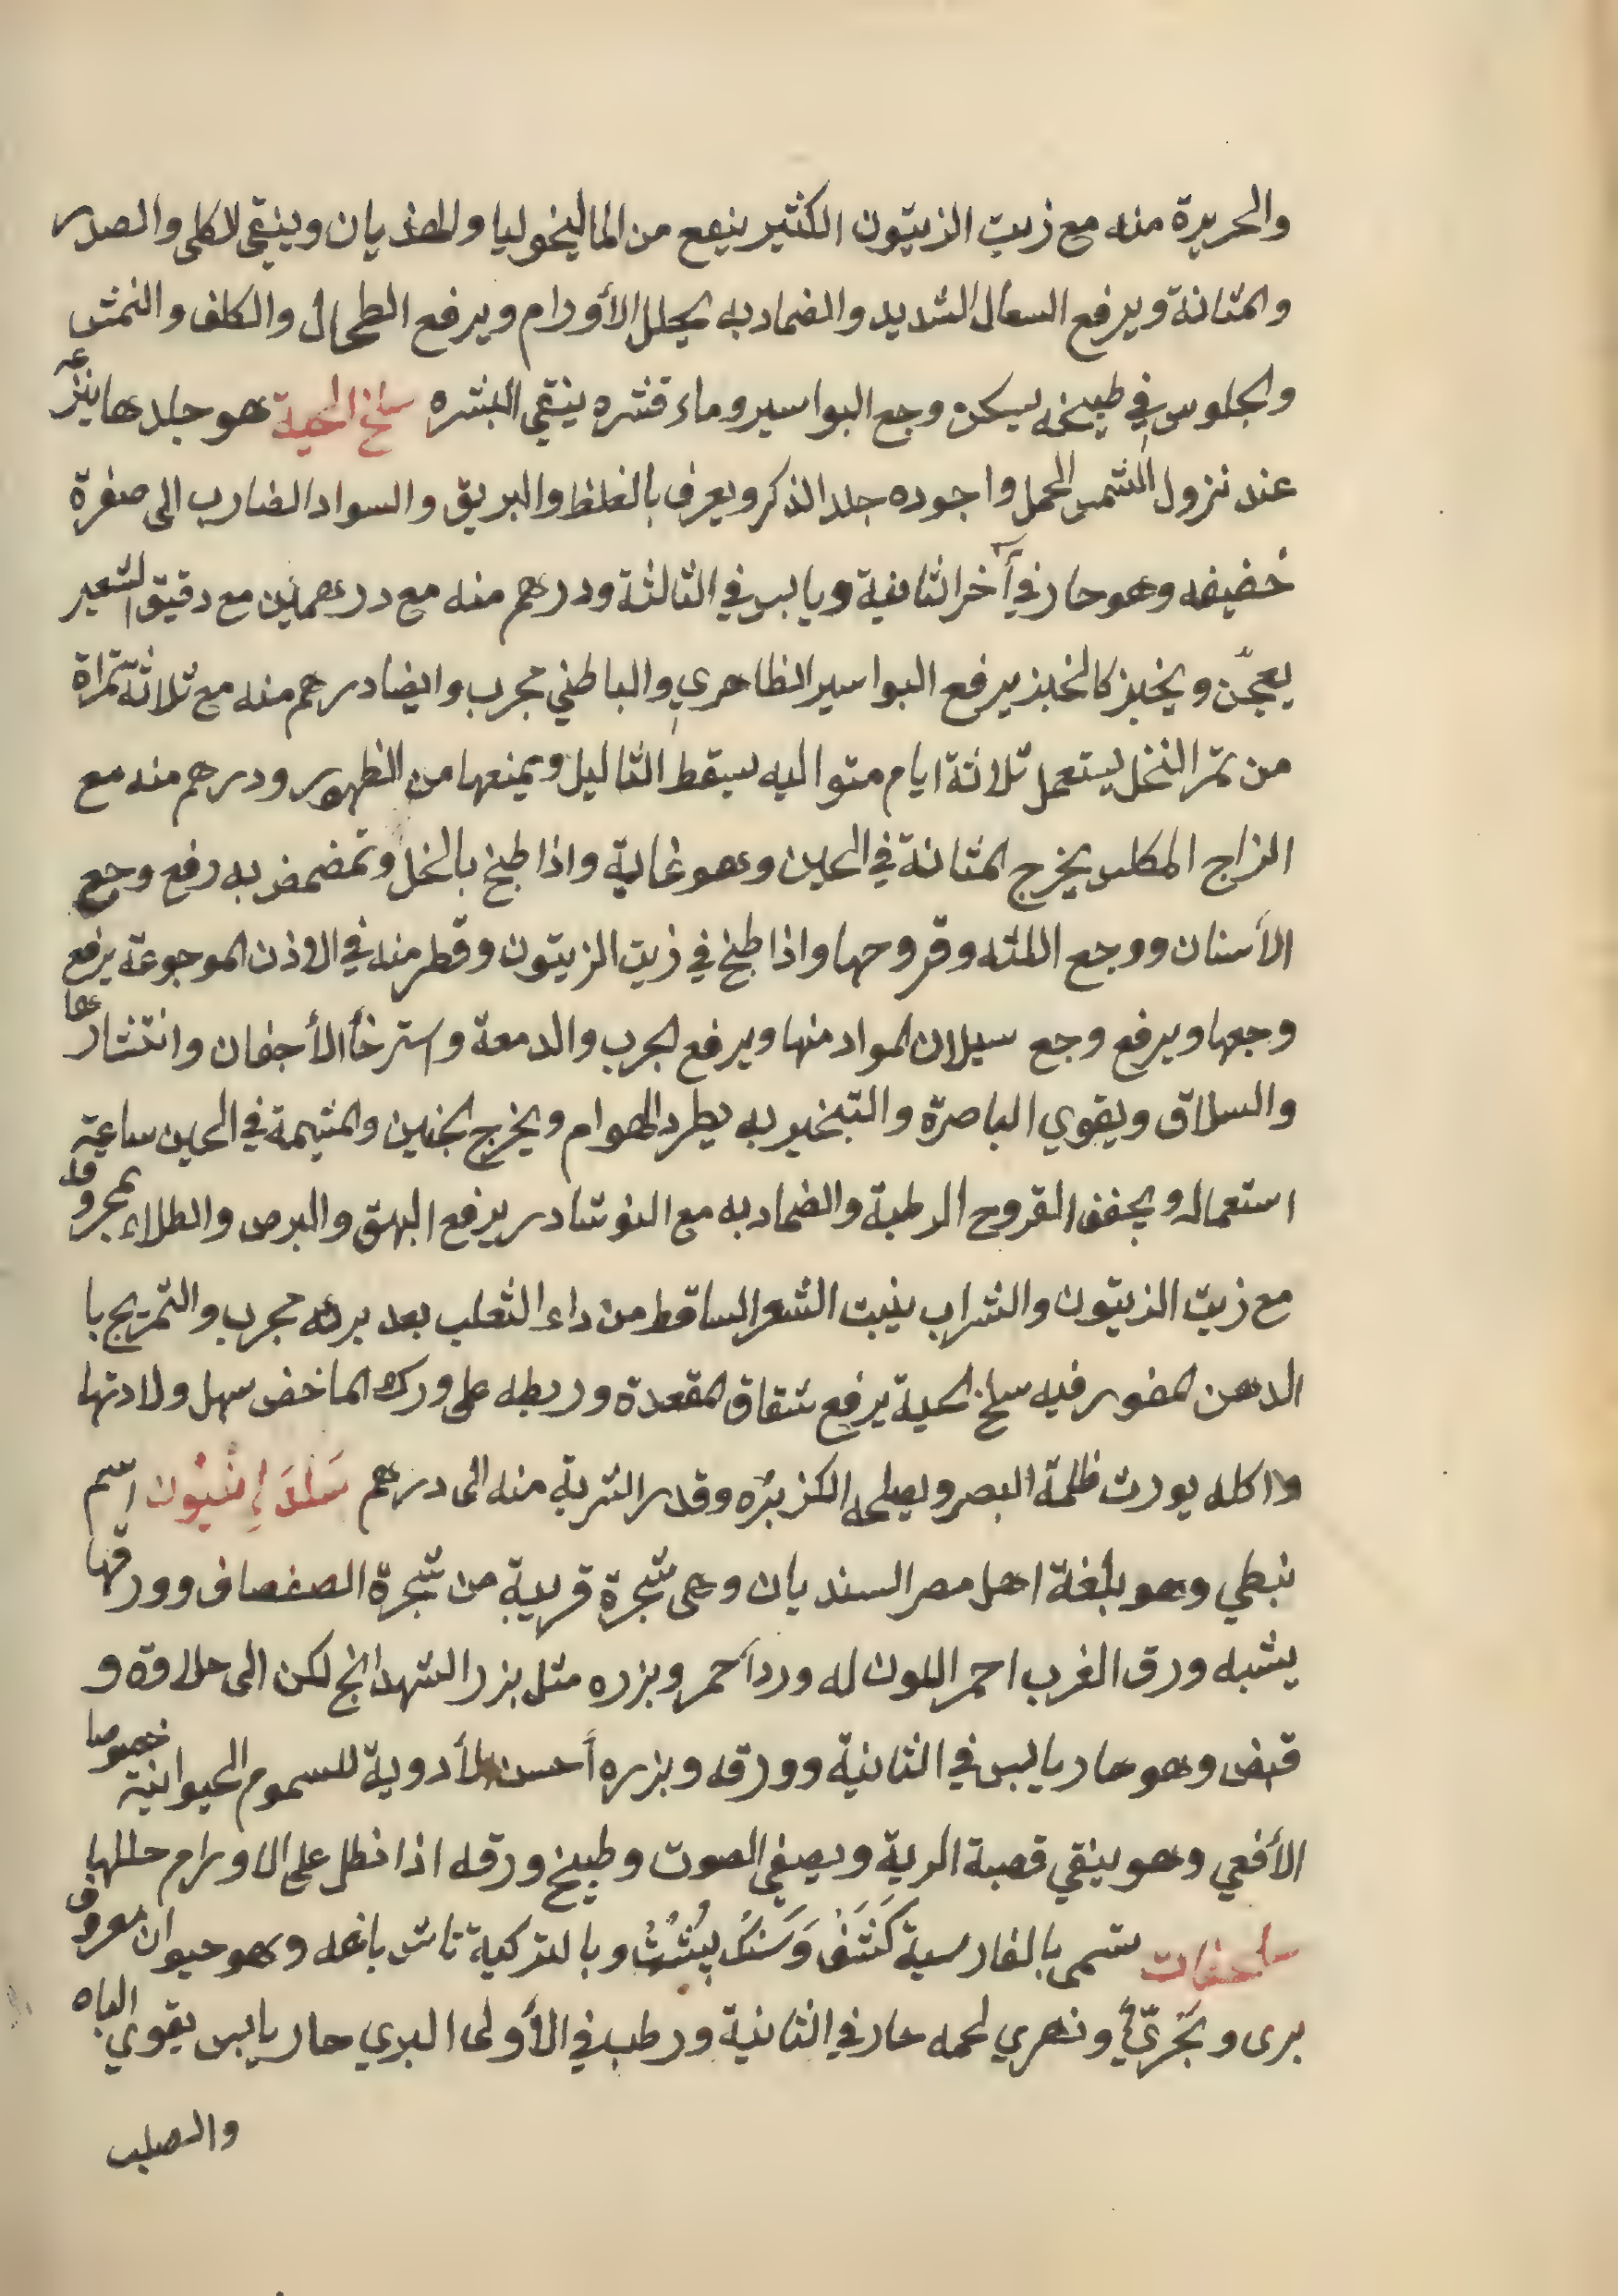 والحريرة منه مع زيت الزيتون الكثير ينفع من الماليخوليا والهذيان وينقي الكلى والصدر
والمثانة ويرفع السعال الشديد والضماد به يحلل الأورام ويرفع الطحال والكلف والنمش
والجلوس في طبيخه يسكن وجع البواسير وماء قشره ينقي البشره سلخ الحية هو جلدها ينزعه
عند نزول الشمس الحمل واجوده جلد الذكر ويعرف بالغلظ والبريق والسواد الضارب الى صفرة
خفيفه وهو حار في آخر الثانية ويابس في الثالثة ودرهم منه مع درهمين مع دقيق الشعير
يعجّن ويخبز كالخبز يرفع البواسير الظاهري والباطني مجرب وايضا درهم منه مع ثلاثة تمراة
من تمر النخل يستعمل ثلاثة ايام متواليه يسقط الثاليل ويمنعها من الظهور ودرهم منه مع
الزاج المكلس يخرج المثانة في الحين وهو غاية واذا طبخ بالخل وتمضمض به رفع وجع
الأسنان ووجع اللثه وقروحها واذا طبخ في زيت الزيتون وقطر منه في الاذن الموجوعة يرفع
وجعها ويرفع وجع سيلان المواد منها ويرفع الجرب والدمعة واسترخأ الأجفان وانتشارها
والسلاق ويقوي الباصرة والتبخير به يطرد الهوام ويخرج الجنين والمشيمة في الحين ساعة
استعماله ويجفف القروح الرطبة والضماد به مع النوشادر يرفع البهق والبرص والطلاء بمحروقه
مع زيت الزيتون والشراب ينبت الشعر الساقط من داء الثعلب بعد برئه مجرب والتمريخ با
الدهن المفور فيه سلخ الحية يرفع شقاق المقعدة وربطه على ورك الماخض سهل ولادتها
واكله يورث ظلمة البصر ويصلحه الكزبره وقدر الشربة منه الى درهم اسم
نبطي وهو بلغة اهل مصر السنديان وهى شجرة قريبة من شجرة الصفصاف وورقها
يشبه ورق الغرب احمر اللون له ورد أحمر وبزره مثل بزر الشهدانج لكن الى حلاوة و
قبض وهو حار يابس في الثانية وورقه وبزره أحسن الأدوية للسموم الحيوانية خصوصا
الأفعي وهو ينقي قصبة الرية ويصفي الصوت وطبيخ ورقه اذا نطل على الاورام حللها
سلحفات تسمى بالفارسية كَشَفْ وَسَنْك پُشْتْ وبالتركية باغه وهو حيوان معروف
برى وبَحْريّ ونهري لحمه حار في الثانية ورطب في الأولى البري حار يابس يقوي الباه
والصلب